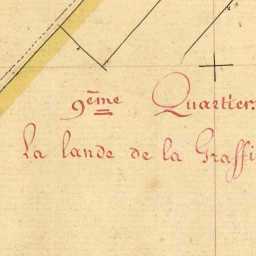 9ème Quartier
La lande de la Graffi